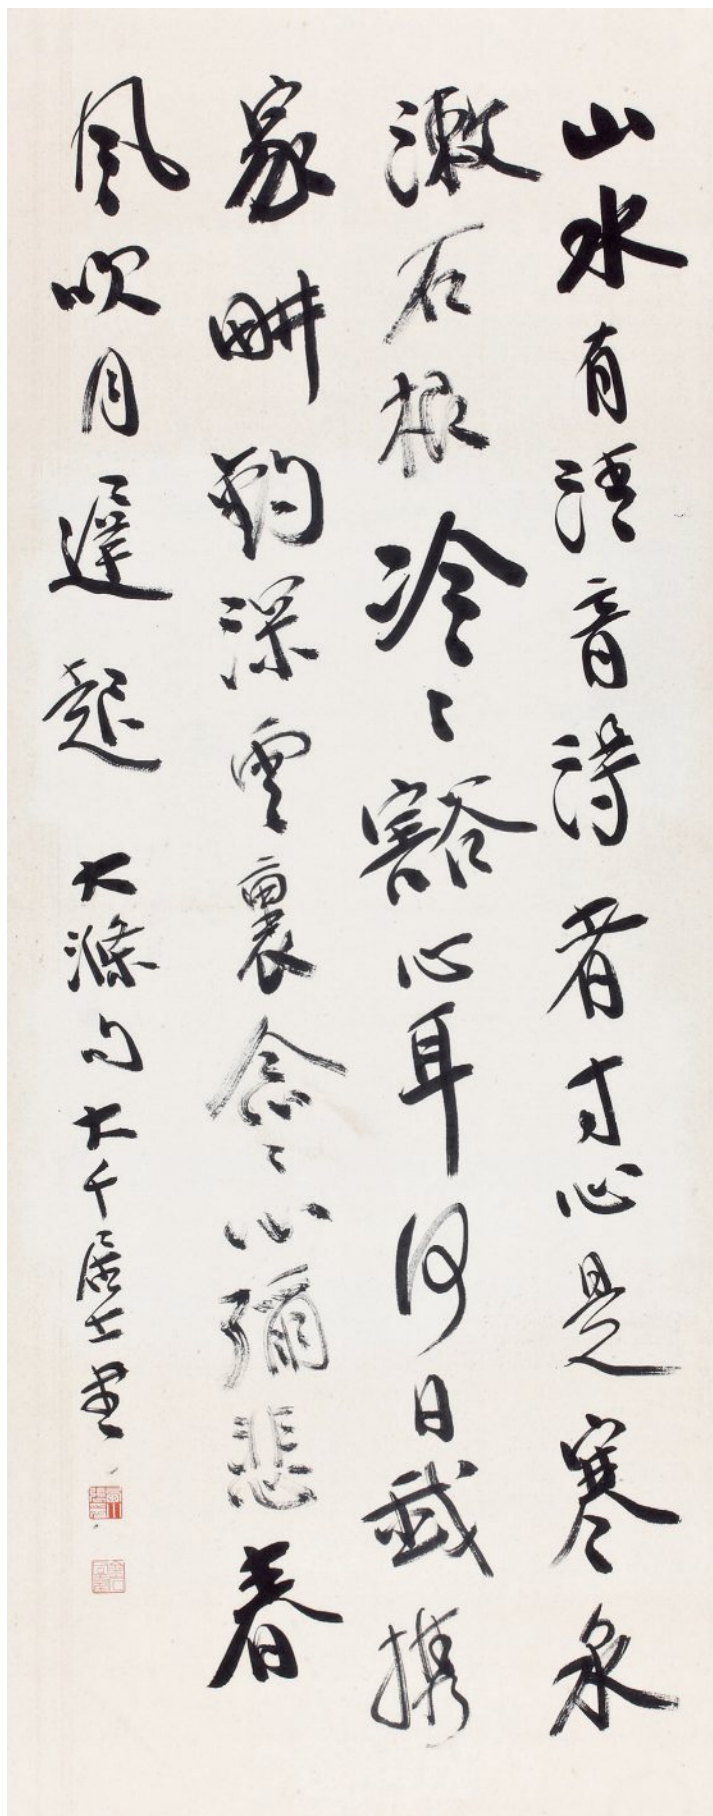 山水有清音得者寸心是寒泉
漱石根冷〻豁心耳何日我携
家耕釣深雲裏念〻心彌悲春
風吹月遲起
大滌句大千居士書